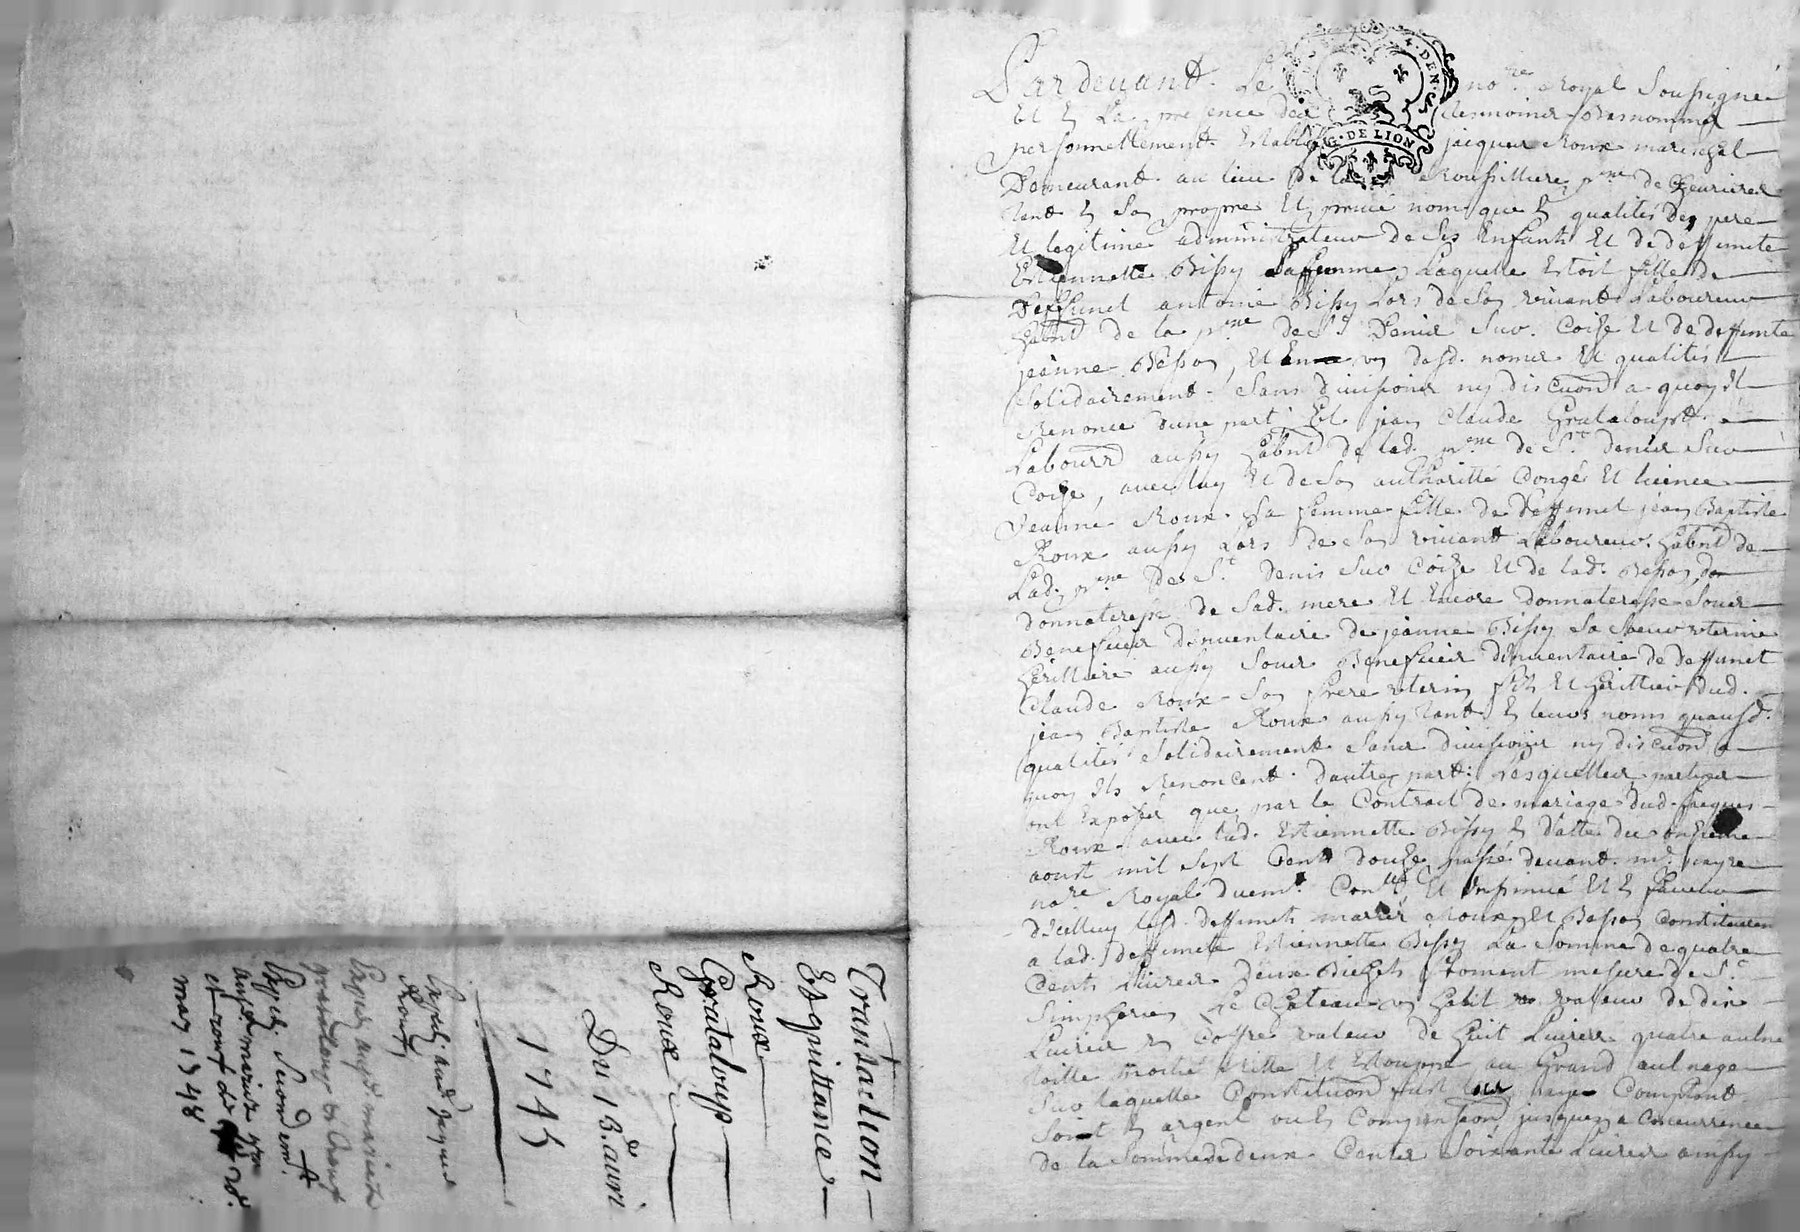 Pardevant Le no.re Royal Soussigné
Et En La presence des tesmoins Basnommés
personnellement Establis jacques Roux mareschal
Demeurant au lieu de la Roussilliere p.sse de
tant En Son propre Et privé nom que En qualités de pere
Et legitime administrateur de Ses Enfants Et de deffunete
Estiennette Bissy Saffemme, Laquelle Estoit fille de
Deffunct antoine Bissy Lors de Son vivant Laboureur
habnt de la p.sse de S.t Denis Sur Coise Et de deffunte
jeanne Besson, Et En un desd. nomes Et qualités
Solidairement Sans division ny discuon a quoy Il
Renonce dune part, Et jean Claude Grataloupt
Labourr aussy habnt de lad. p.sse de S.t denis Sur
Coise, avec luy Et de Son authoritté Congé Et licence
Jeanne Roux Sa femme fille de deffunct jean Baptiste
Roux aussy Lors de Son vivant Laboureur habnt de
Lad. p.sse de S.t denis Sur Coise Et de lad. Besson
donnateresse de Sad. mere Et Encore donnateresse Sous
Benefice dinventaire de jeanne Bissy Sa Soeur uterine
heritiere aussy Sous Benefice dinventaire de deffunct
Claude Roux Son frere uterin fils Et heritier dud.
jean Baptiste Roux aussy tant En leurs noms quausd.
qualités Solidairement Sans division ny discuon a
quoy Ils Renoncent dautre part: Lesquelles parties
ont Exposé que par le Contract de mariage dud. jacques
Roux avec lad. Estiennette Bissy En datte du onzieme
aoust mil Sept Cent douze passé devant m.e
no.re Royal duem.t Con.llé Et Insinué Et En faveur
dicelluy lesd. deffunets mariés Roux Et Besson Constituerent
a lad. deffuncte Estiennette Bissy La Somme de quatre
Cents Livres deux Bichets froment mesure de S.t
Simphorien Le Chateau un habit valeur de dix
Livres un Coffre valeur de huit Livres quatre aulne
toille moitié Ritte Et Estoupe au Grand aulnage
Sur laquelle Constitution fust paye Comptant
Soit En argent ou En Compension jusques a Concurrence
de la Somme de deux Centes Soixante Livres aussy
Transaction
Et quittance
Roux
Grataloup
Roux
Du 13.e avril
1745
Expedié aud. Jaques
Roux
Expedié auxd. mariés
Grataloup
Expedi. Secondem.t
auxd. mariés
et Roux le
may 1748